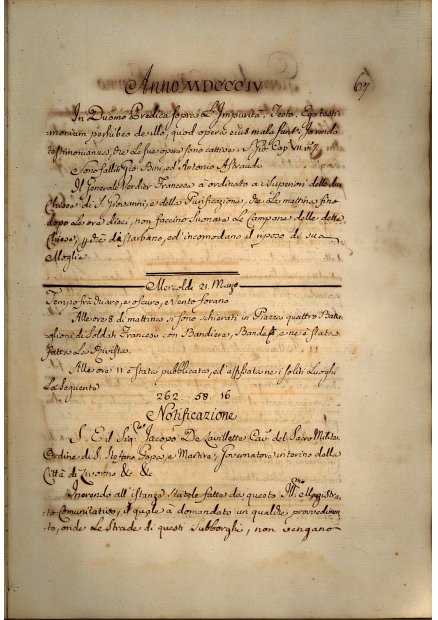 Anno MDCCCIV
67
In Duomo Predica sopra L'Impurità. Testo, Ego testi-
monium perhibeo de illo, quod opera eius mala sunt. Io rendo
testimonianza, che Le sue opere sono cattive. S. Gio: Cap. VII.
e Sono falliti Gio. ed Antonio
Il Generale Verdier Francese à ordinato a i Superiori delle due
Chiese di S. Giovanni, e della Purificazione, che La mattina fino
dopo Le ore dieci, non faccino Suonare Le Campane delle dette
Chiese, che disturbano, ed incomodano il riposo di sua
Moglie
Mercoldì 21. Marzo
Tempo frà chiaro, e oscuro, e Vento forano
Alle ore 8 di mattina si sono schierati in Piazza quattro Batta-
glioni di Soldati Francesi con Bandiere, Bande, e ne è stata
fatta La Rivista.
Alle ore 11 è stata pubblicata, ed affissata ne i soliti Luoghi
La seguente
262. 58. 16
Notificazione
S. E. il Sig. Jacopo De Lavillette Cav. del Sacro Milita
Ordine di S. Stefano Papa, e Martire, Governatore interino della
Città di Livorno &c &c.
Inerendo all'istanza statole fatta da questo Ill.mo Magistra-
to Comunitativo, il quale à domandato un qualche provvedimen-
to, onde Le Strade di questi Subborghi, non vengano